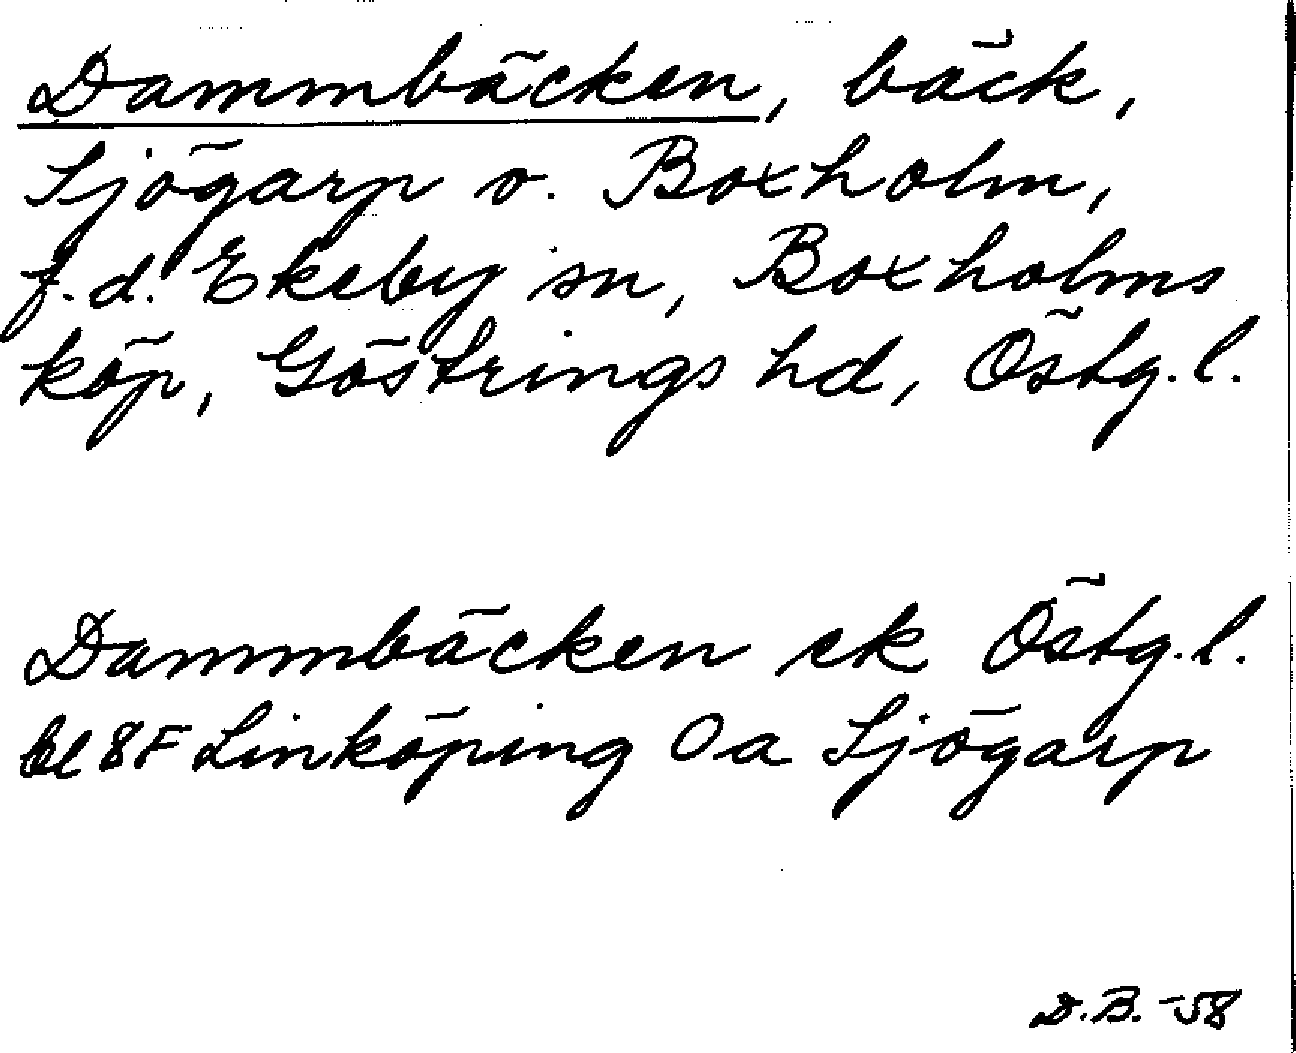 Dammbäcken, bäck,
Sjögarp v. Boxholm,
f.d. Ekeby sn, Boxholms
köp, Göstrings hd, Östg.l.
Dammbäcken ek Östg.l.
bl 8F Linköping Oa Sjögarp
D.B. -58